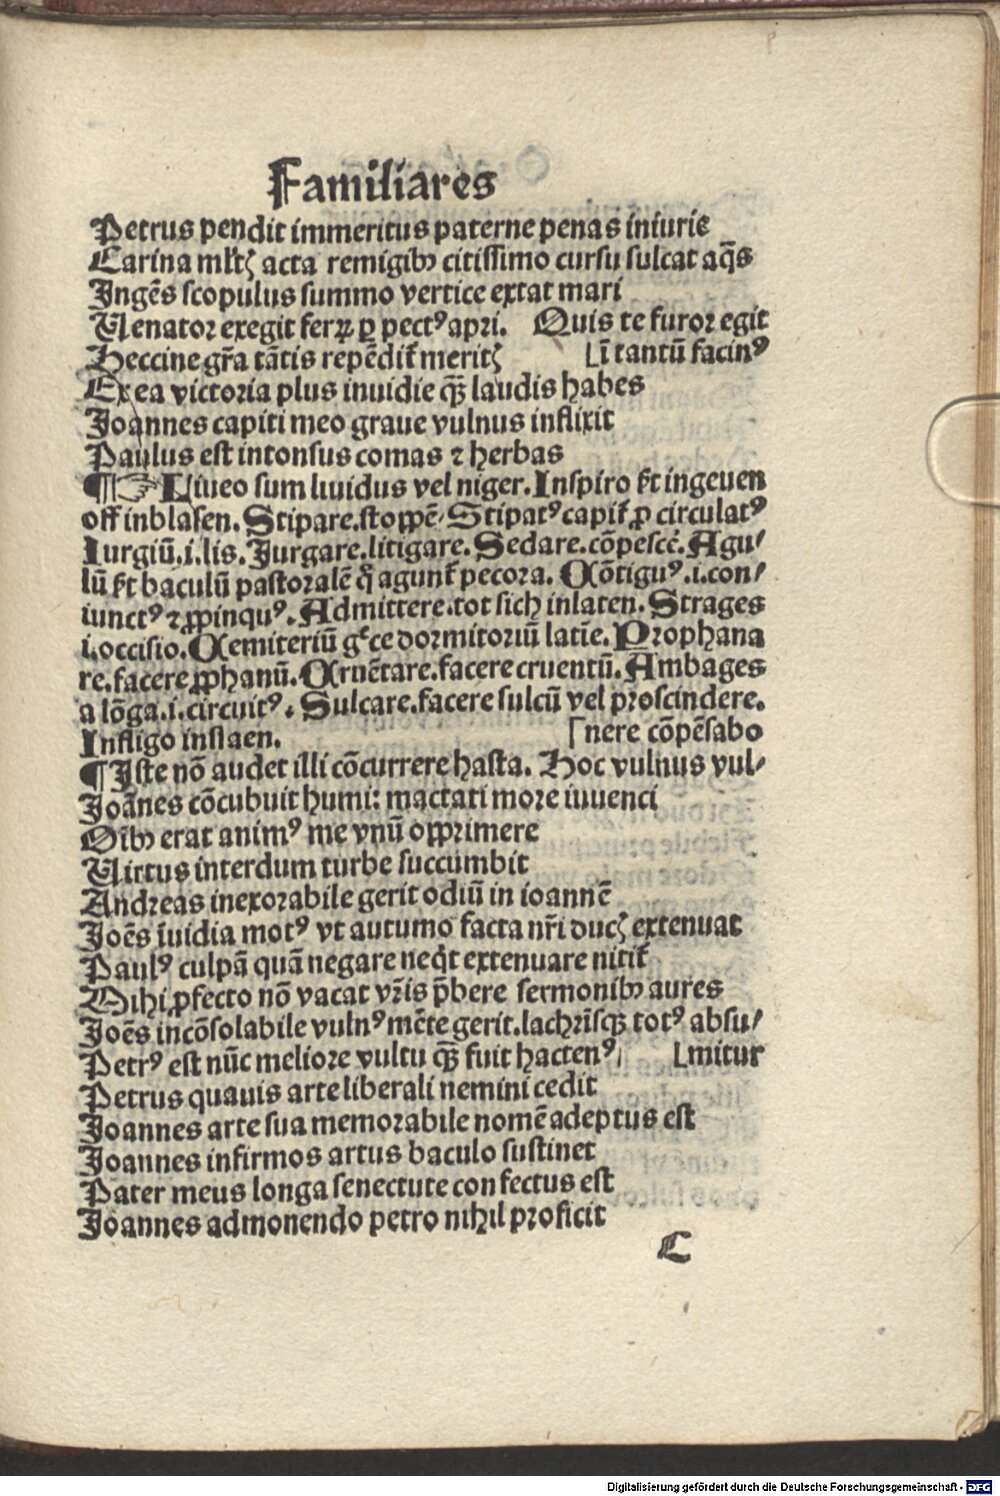 Familiares
Petrus pendit immeritus paterne penas iniurie
Carina ml̃tꝫ acta remigibꝰ citissimo cursu sulcat aq̃s
Ingẽs scopulus summo vertice extat mari
Uenator exegit ferꝝ ꝑ pectꝰ apri. Quis te furor egit
Heccine gr̃a tãtis repẽdit̃ meritꝭ ⌊ĩ tantũ facinꝰ
Ex ea victoria plus inuidie q̃ꝫ laudis habes
Joannes capiti meo graue vulnus inflixit
Paulus est intonsus comas ⁊ herbas
¶☞ Liueo sum liuidus vel niger. Inspiro st̃ ingeuen
off inblasen. Stipare. stoppẽ. Stipatꝰ capit̃ ꝓ circulatꝰ
Iurgiũ .i. lis. Jurgare. litigare. Sedare. cõpescẽ. Agu/
lũ st̃ baculũ pastoralẽ q̊ agunt̃ pecora. Cõtiguꝰ .i. con/
iunctꝰ ⁊ ꝓpinquꝰ. Admittere. tot sich inlaten. Strages
i. occisio. Cemiteriũ gͨce dormitoriũ latĩe. Prophana
re. facere ꝓphanũ. Cruẽtare. facere cruentũ. Ambages
a lõga .i. circuitꝰ. Sulcare. facere sulcũ vel proscindere.
Infligo inslaen. ⌈nere cõpẽsabo
¶ Iste nõ audet illi cõcurrere hasta. Hoc vulnus vul/
Joãnes cõcubuit humi: mactati more iuuenci
Oĩbꝰ erat animꝰ me vnũ opprimere
Uirtus interdum turbe succumbit
Andreas inexorabile gerit odiũ in ioannẽ
Joẽs ĩuidia motꝰ vt autumo facta nr̃i ducꝭ extenuat
Paulꝰ culpã quã negare neq̇t extenuare nitit̃
Mihi ꝓfecto nõ vacat vr̃is p̃bere sermonibꝰ aures
Joẽs incõsolabile vulnꝰ mẽte gerit. lachrĩsqꝫ totꝰ absu/
Petrꝰ est nũc meliore vultu q̃ꝫ fuit hactenꝰ ⌊mitur
Petrus quauis arte liberali nemini cedit
Joannes arte sua memorabile nomẽ adeptus est
Joannes infirmos artus baculo sustinet
Pater meus longa senectute confectus est
Joannes admonendo petro nihil proficit
C
Digitalisierung gefördert durch die Deutsche Forschungsgemeinschaft - DFG